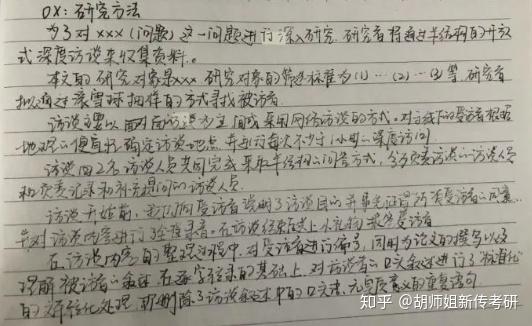 0X:研究方法
为了对xxx(问题)这一问题进行深入研究,研究者将通过半结构的开放
式深度访谈来收集资料。
本文的研究对象是xxx,研究对象的筛选标准为(1)…(2)…(3)等,研究者
拟通过滚雪球抽样的方式寻找被访者。
访谈主要以面对面访谈为主,间或采用网络访谈的方式。对于线下的受访者根据
地理的便利性确定访谈地点,并进行每次不少于1小时的深度访问。
访谈由2名访谈人员共同完成,采取半结构的问答方式,分为负责访谈的访谈人员
和负责记录和补充提问的访谈人员。
访谈开始前,我们向受访者说明了访谈目的并事先征得所有受访者的同意
并对访谈内容进行全程录音,在访谈结束后送上小礼物报答受访者
在访谈内容的整理过程中,对受访者进行编号,同时为论文的撰写以及
理解被访者的叙述,在逐字转录的基础上,对访谈者的口头叙述进行了标准化
的文字转化处理,即删除了访谈叙述中的口头禅、无实质意义的重复语句
知乎 @胡师姐新传考研